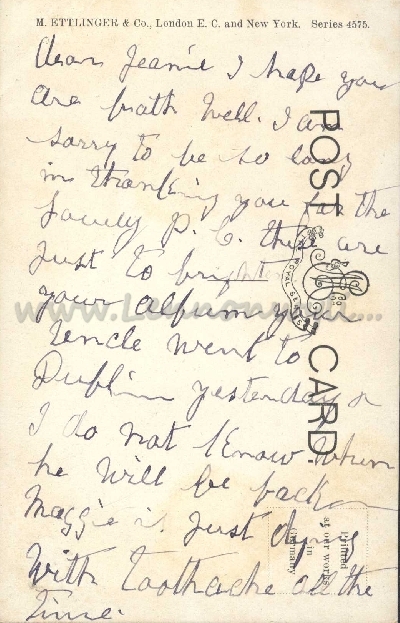 M. ETTLINGER & Co., London E. C. and New York. Series 4575.
Dear Jeanie I hope you
are both well. I am
sorry to be so long
in thanking you for the
lovely P. C. these are
just to brighten
your album your
uncle went to
Dublin yesterday &
I do not Know when
he will be back
Maggie is just dying
with toothache all the
time.
POST CARD.
Printed
at our works
in
Germany